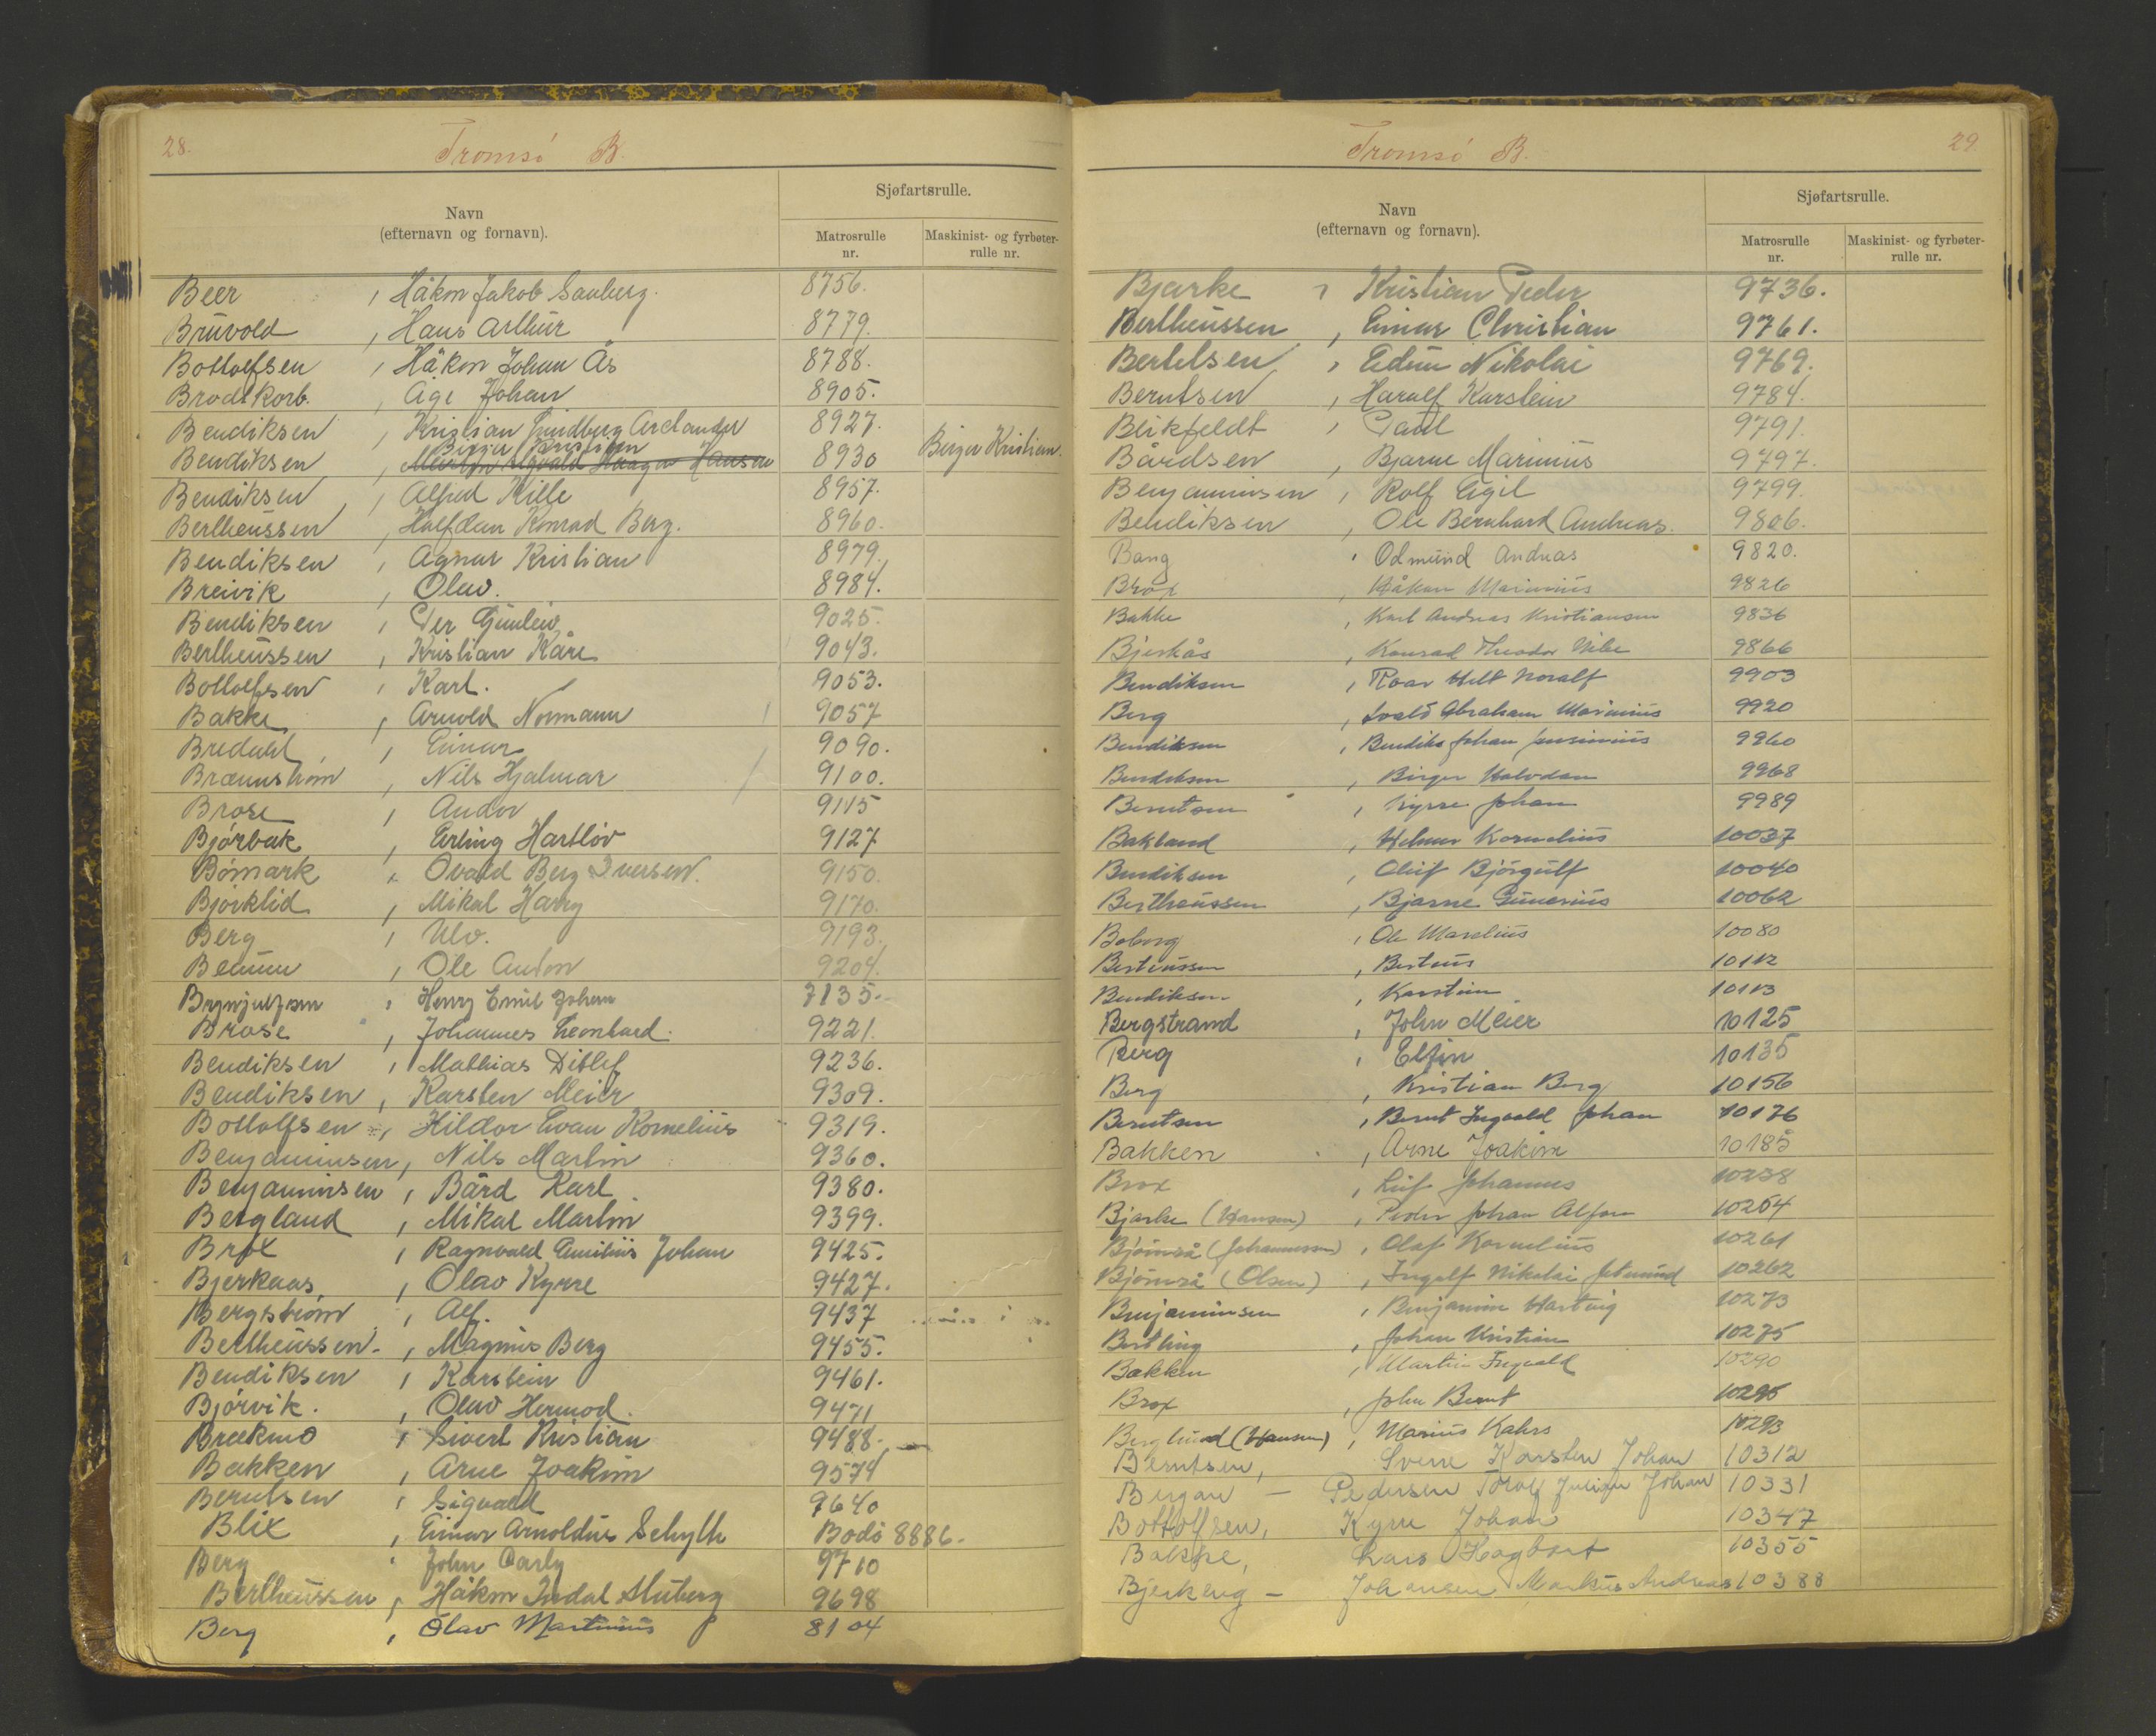 28.
Tromsö B.
Navn
(efternavn og fornavn).
Sjøfartsrulle.
Matrosrulle nr.
Maskinist- og fyrbøter-rulle nr.
Beer , Håkon Jakob Sauberg. 8756.
Brüvold , Hans Arthur 8779.
Bottolfsen , Håkon Johan Ås 8788.
Brodtkorb. , Åge Johan 8905.
Bendiksen , Kristian Lindberg 8927.
Bendiksen , Birger Kristian 8930 Birger Kristian.
Bendiksen , Alfred Kille 8957.
Bertheussen , Halfdan Konrad Berg. 8960.
Bendiksen , Agnar Kristian 8979.
Breivik , Olav. 8984.
Bendiksen , Per Gunleiv 9025.
Bertheussen , Kristian Kåre 9043.
Bottolfsen , Karl. 9053.
Bakke , Arnold Normann 9057
Bredahl , Einar 9090.
Brænnstrøm , Nils Hjalmar 9100.
Brose , Andor 9115
Bjørbak , Erling Hartløv 9127
Bömark , Ovald Berg Iversen. 9150.
Bjørklid , Mikal Harry 9170.
Berg , Ulv. 9193.
, Ole Anton 9204.
Brynjulfsen , Henry Emil Johan 7135.
Brose , Johannes Leonhard. 9221.
Bendiksen , Mathias Ditlef 9236.
Bendiksen , Karsten Meier 9309.
Bottolfsen , Hildor Evan Kornelius 9319.
Benjaminsen , Nils Martin 9360.
Benjaminsen , Bård Karl 9380.
Bergland , Mikal Martin 9399.
Brox , Ragnvald Emilius Johan 9425.
Bjerkaas , Olav Kyrre 9427.
Bergstrøm , Alf. 9437
Bertheussen , Magnus Berg 9455.
Bendiksen , Karstein 9461.
Bjørvik. , Olav Hermod. 9471
Brækmo , Sivert Kristian 9488.
Bakken , Arne Joakim 9574
Berntsen , Sigvald 9640
Blix , Einar Arnoldus Schytte Bodö 8886.
Berg , John Carly 9710
Bertheussen , Håkon 9698
Berg , Olav Martinius 8104
29.
Tromsö B.
Navn
(efternavn og fornavn).
Sjøfartsrulle.
Matrosrulle nr.
Maskinist- og fyrbøter-rulle nr.
Bjerke , Kristian Peder 9736.
Bertheussen , Einar Christian 9761.
Bertelsen , Edin Nikolai 9769.
Berntsen , Haralf Karstein 9784.
Blikfeldt , Paul 9791.
Bårdsen , Bjarne Marinius 9797.
Benjaminsen , Rolf Egil 9799.
Bendiksen , Ole Bernhard Andreas. 9806.
Bang , Odmund Andreas 9820.
Brox , Håkon Marinius 9826
Bakke , Karl Andreas Kristiansen 9836
Bjerkås , Konrad Theodor 9866
Bendiksen , Roar Noralf 9903
Berg , Ivald Abraham Marinius 9920
Bendiksen , Bendiks Johan Jensinius 9960
Bendiksen , Birger Halvdan 9968
Berntsen , Kyrre Johan 9989
Bakland , Helmer Kornelius 10037
Bendiksen , Oluf Bjørgulf 10040
Bertheussen , Bjarne Gunerius 10062
Boberg , Ole Marelius 10080
Berteussen , Berteus 10112
Bendiksen , Karstein 10113
Bergstrand , John Meier 10125
Berg , Elfin 10135
Berg , Kristian Berg 10156
Berntsen , Bernt Ingvald Johan 10176
Bakken , Arne Joakim 10185
Brox , Leif Johannes 10238
Bjerke (Hansen) , Peder Johan Alfon 10264
Bjørnså (Johannessen) , Olaf Kornelius 10261
Bjørnså (Olsen) , Ingolf Nikolai 10262
Benjaminsen , Benjamin Hartvig 10273
Bertling , Johan Kristian 10275
Bakken , Martin Ingvald 10290
Brox , John Bernt 10295
Berglund (Hansen) , Marius Kahrs 10293
Berntsen, Sverre Karsten Johan 10312
Bergan — Pedersen Torolf Johan 10331
Bottolfsen, Kyrre Johan 10347
Bakke, Lars Hagbart 10355
Bjerkeng — Johansen Markus Andreas 10388